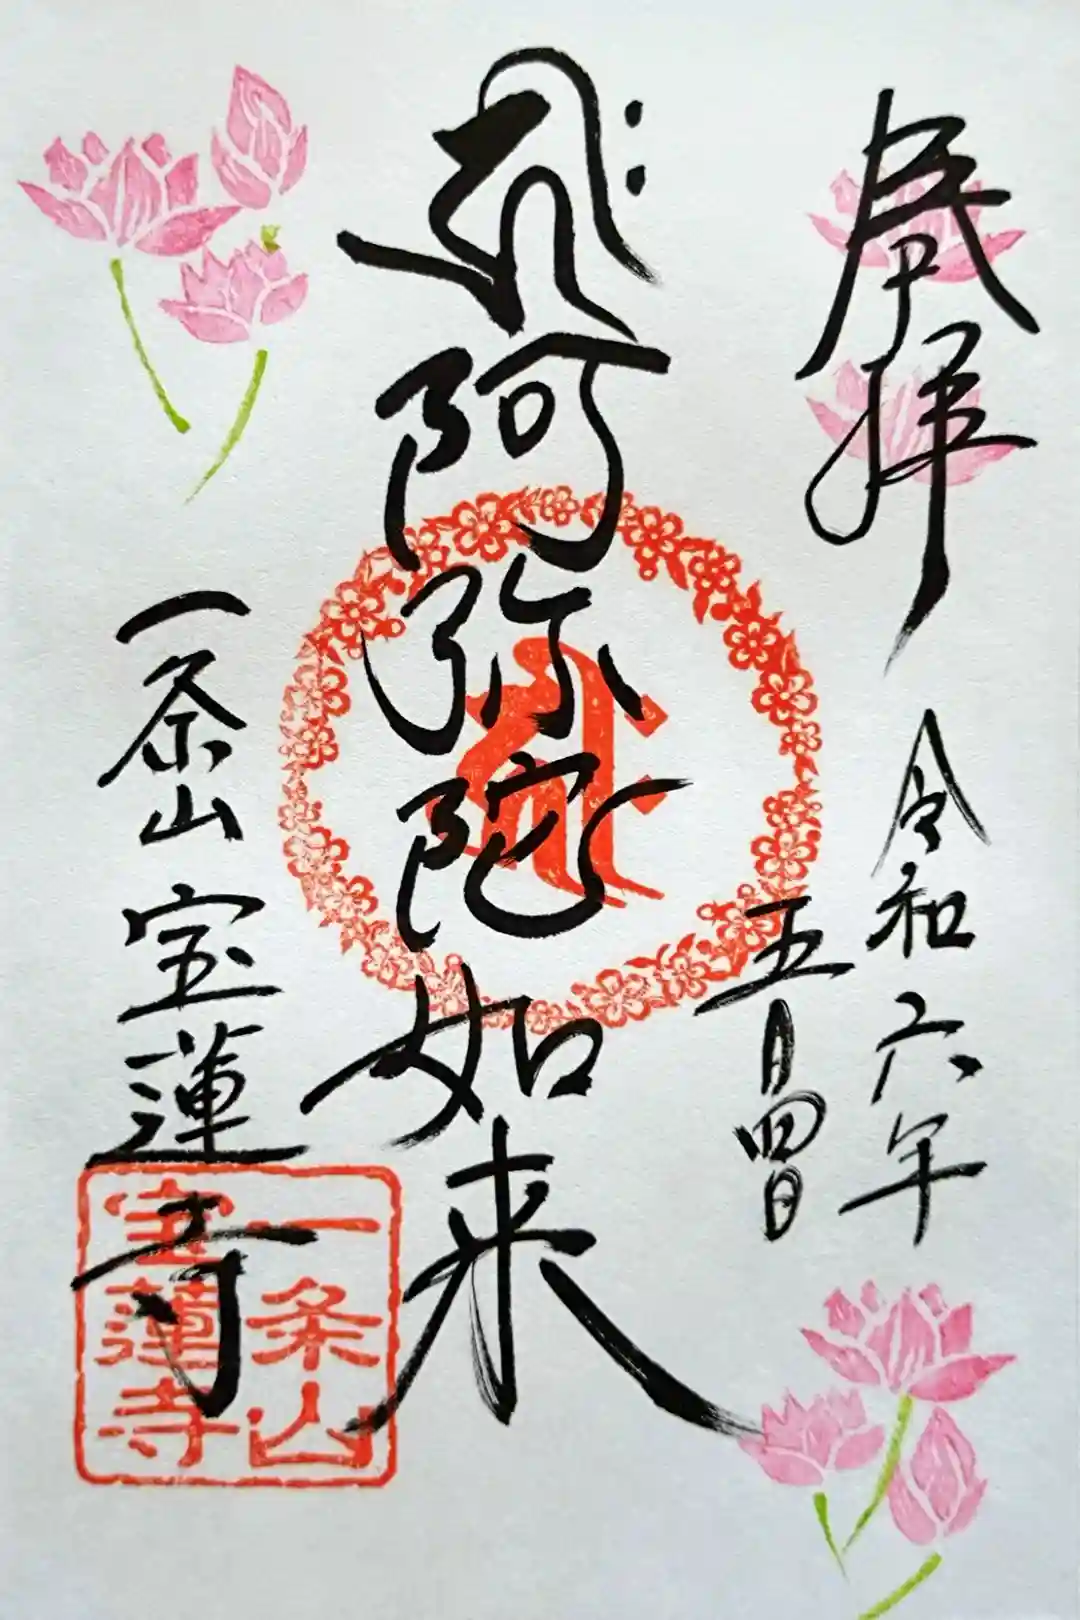 奉拝
令和六年
五月四日
𑖮𑖿𑖨𑖱𑖾
阿弥陀如来
𑖮𑖿𑖨𑖱𑖾
一条山宝蓮寺
一条山
宝蓮寺